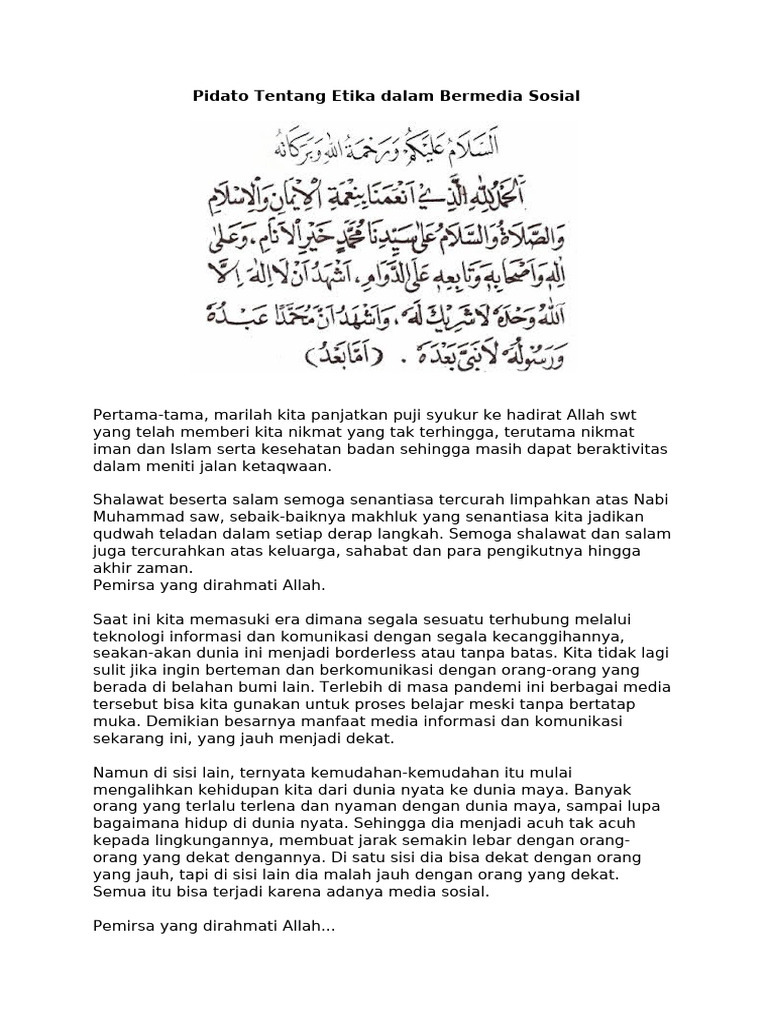 Pidato Tentang Etika dalam Bermedia Sosial
اَلسَّلَامُ عَلَيْكُمْ وَرَحْمَةُ اللهِ وَبَرَكَاتُهُ
اَلْحَمْدُ لِلّٰهِ الَّذِيْ اَنْعَمَنَا بِنِعْمَةِ الْاِيْمَانِ وَالْاِسْلَامِ
وَالصَّلَاةُ وَالسَّلَامُ عَلٰى سَيِّدِنَا مُحَمَّدٍ خَيْرِ الْاَنَامِ، وَعَلٰى
اٰلِهٖ وَاَصْحَابِهٖ وَتَابِعِهٖ عَلَى الدَّوَامِ، اَشْهَدُ اَنْ لَا اِلٰهَ اِلَّا
اللهُ وَحْدَهٗ لَا شَرِيْكَ لَهٗ، وَاَشْهَدُ اَنَّ مُحَمَّدًا عَبْدُهٗ
وَرَسُوْلُهٗ لَا نَبِيَّ بَعْدَهٗ . (اَمَّا بَعْدُ)
Pertama-tama, marilah kita panjatkan puji syukur ke hadirat Allah swt
yang telah memberi kita nikmat yang tak terhingga, terutama nikmat
iman dan Islam serta kesehatan badan sehingga masih dapat beraktivitas
dalam meniti jalan ketaqwaan.
Shalawat beserta salam semoga senantiasa tercurah limpahkan atas Nabi
Muhammad saw, sebaik-baiknya makhluk yang senantiasa kita jadikan
qudwah teladan dalam setiap derap langkah. Semoga shalawat dan salam
juga tercurahkan atas keluarga, sahabat dan para pengikutnya hingga
akhir zaman.
Pemirsa yang dirahmati Allah.
Saat ini kita memasuki era dimana segala sesuatu terhubung melalui
teknologi informasi dan komunikasi dengan segala kecanggihannya,
seakan-akan dunia ini menjadi borderless atau tanpa batas. Kita tidak lagi
sulit jika ingin berteman dan berkomunikasi dengan orang-orang yang
berada di belahan bumi lain. Terlebih di masa pandemi ini berbagai media
tersebut bisa kita gunakan untuk proses belajar meski tanpa bertatap
muka. Demikian besarnya manfaat media informasi dan komunikasi
sekarang ini, yang jauh menjadi dekat.
Namun di sisi lain, ternyata kemudahan-kemudahan itu mulai
mengalihkan kehidupan kita dari dunia nyata ke dunia maya. Banyak
orang yang terlalu terlena dan nyaman dengan dunia maya, sampai lupa
bagaimana hidup di dunia nyata. Sehingga dia menjadi acuh tak acuh
kepada lingkungannya, membuat jarak semakin lebar dengan orang-
orang yang dekat dengannya. Di satu sisi dia bisa dekat dengan orang
yang jauh, tapi di sisi lain dia malah jauh dengan orang yang dekat.
Semua itu bisa terjadi karena adanya media sosial.
Pemirsa yang dirahmati Allah...